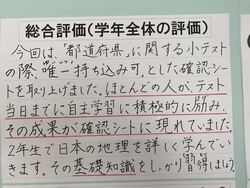 総合評価(学年全体の評価)
今回は、「都道府県」に関する小テスト
の際、唯一"持ち込み可"とした確認シート
を取り上げました。ほとんどの人が、テスト
当日までに自主学習に積極的に励み、
その成果が確認シートに現れていました。
2年生で日本の地理を詳しく学んでい
きます。その基礎知識をしっかり習得しましょう